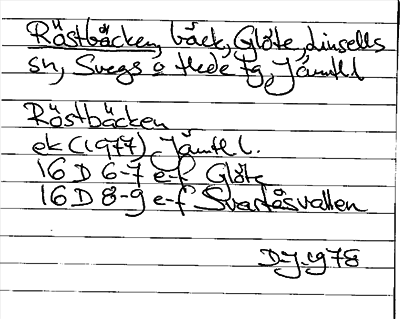 Röstbäcken, bäck, Glöte, Linsells
sn, Svegs o Hede tg, Jämtl l
Röstbäcken
ek (1977) Jämtl l.
16 D 6-7 e-f Glöte
16 D 8-9 e-f Svartåsvallen
D-J 1978